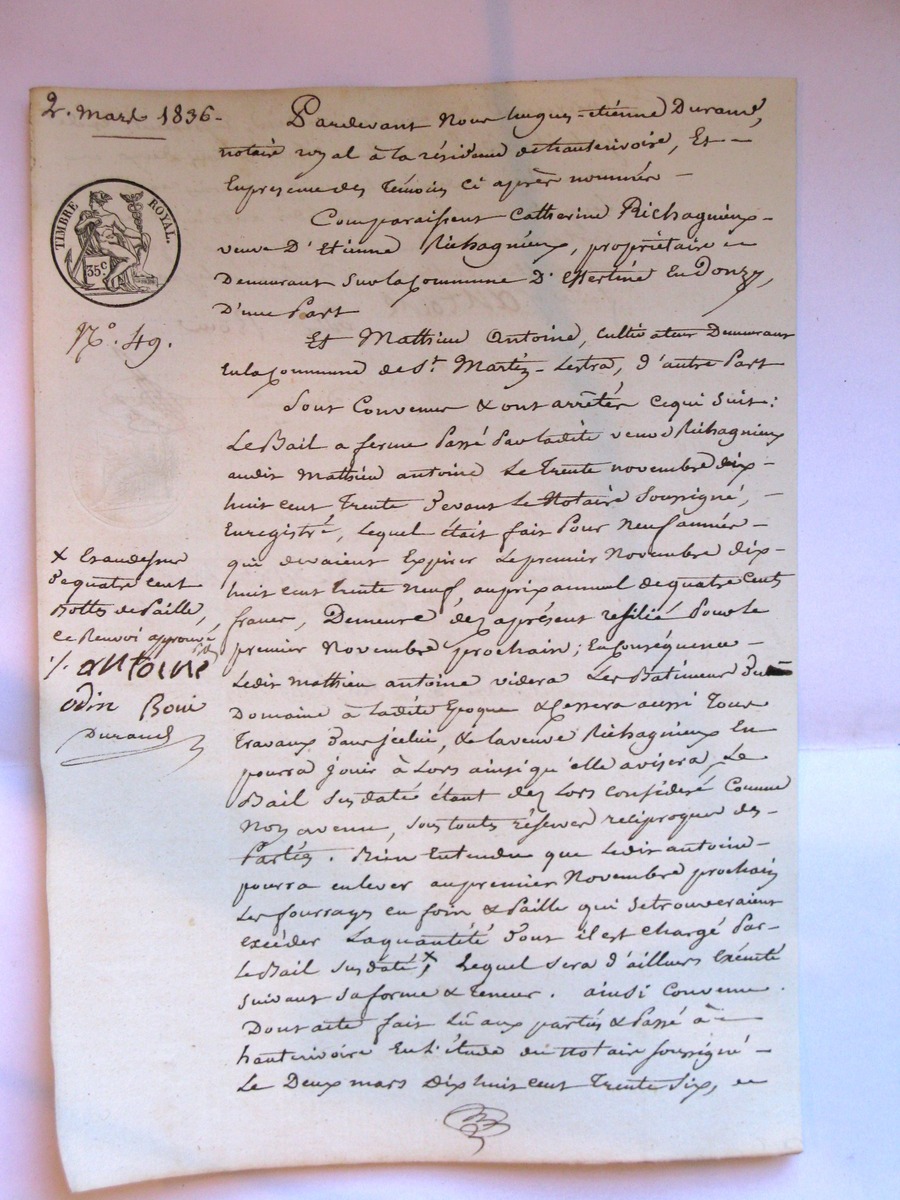 2. Mars 1836.
TIMBRE ROYAL.
35c
No. 49.
Pardevant Nous hugues-étienne Durand,
notaire royal à la résidence de hauterivoire, Et
En presence des Témoins ci après nommés
Comparaissent Catherine Richagnieux
veuve D'Etienne Richagnieux, propriétaire
Demeurant Sur la Commune D'Essertine En Donzy,
D'une Part
Et Mathieu Antoine, Cultivateur Demeurant
En la Commune de St. Martin-Lestra, D'autre Part
Sont Convenus & ont arrêtés ce qui Suit:
Le Bail a ferme Passé Par ladite veuve Richagnieux
audit Mathieu antoine Le Trente novembre dix-
huit cent Trente Devant Le Notaire Soussigné,
Enregistré, Lequel était fait Pour neuf années
qui devaient Expirer Le premier Novembre dix-
huit cent trente neuf, au prix annuel de quatre Cents
francs, Demeure dez aprésent résilié Pour le
premier Novembre prochain; En Conséquence
Ledit Mathieu antoine videra Les Batimens Du
Domaine à Ladite Epoque & Cessera aussi Tous
Travaux Dans jcelui, & la veuve Richagnieux En
pourra jouir à Lors ainsi qu'elle avisera, Le
Bail Susdaté étant dez Lors Considéré Comme
Non avenu, Sous toutes réserves réciproques des
Parties. Bien Entendu que Ledit antoine
pourra enlever au premier Novembre prochain
Les fourrages en foin & Paille qui Se trouveraient
excéder La quantité Dont il est chargé Par
Le Bail Susdaté x, Lequel Sera d'ailleurs Exécuté
Suivant Sa forme & Teneur. ainsi Convenu.
Dont acte fait Lû aux parties & Passé à
hauterivoire En L'étude du Notaire Soussigné
Le Deux mars Dix huit cent Trente Six,
x Et au dessus
De quatre cent
Bottes de Paille,
ce Renvoi approuvé
antoine
odin Boui
Durand